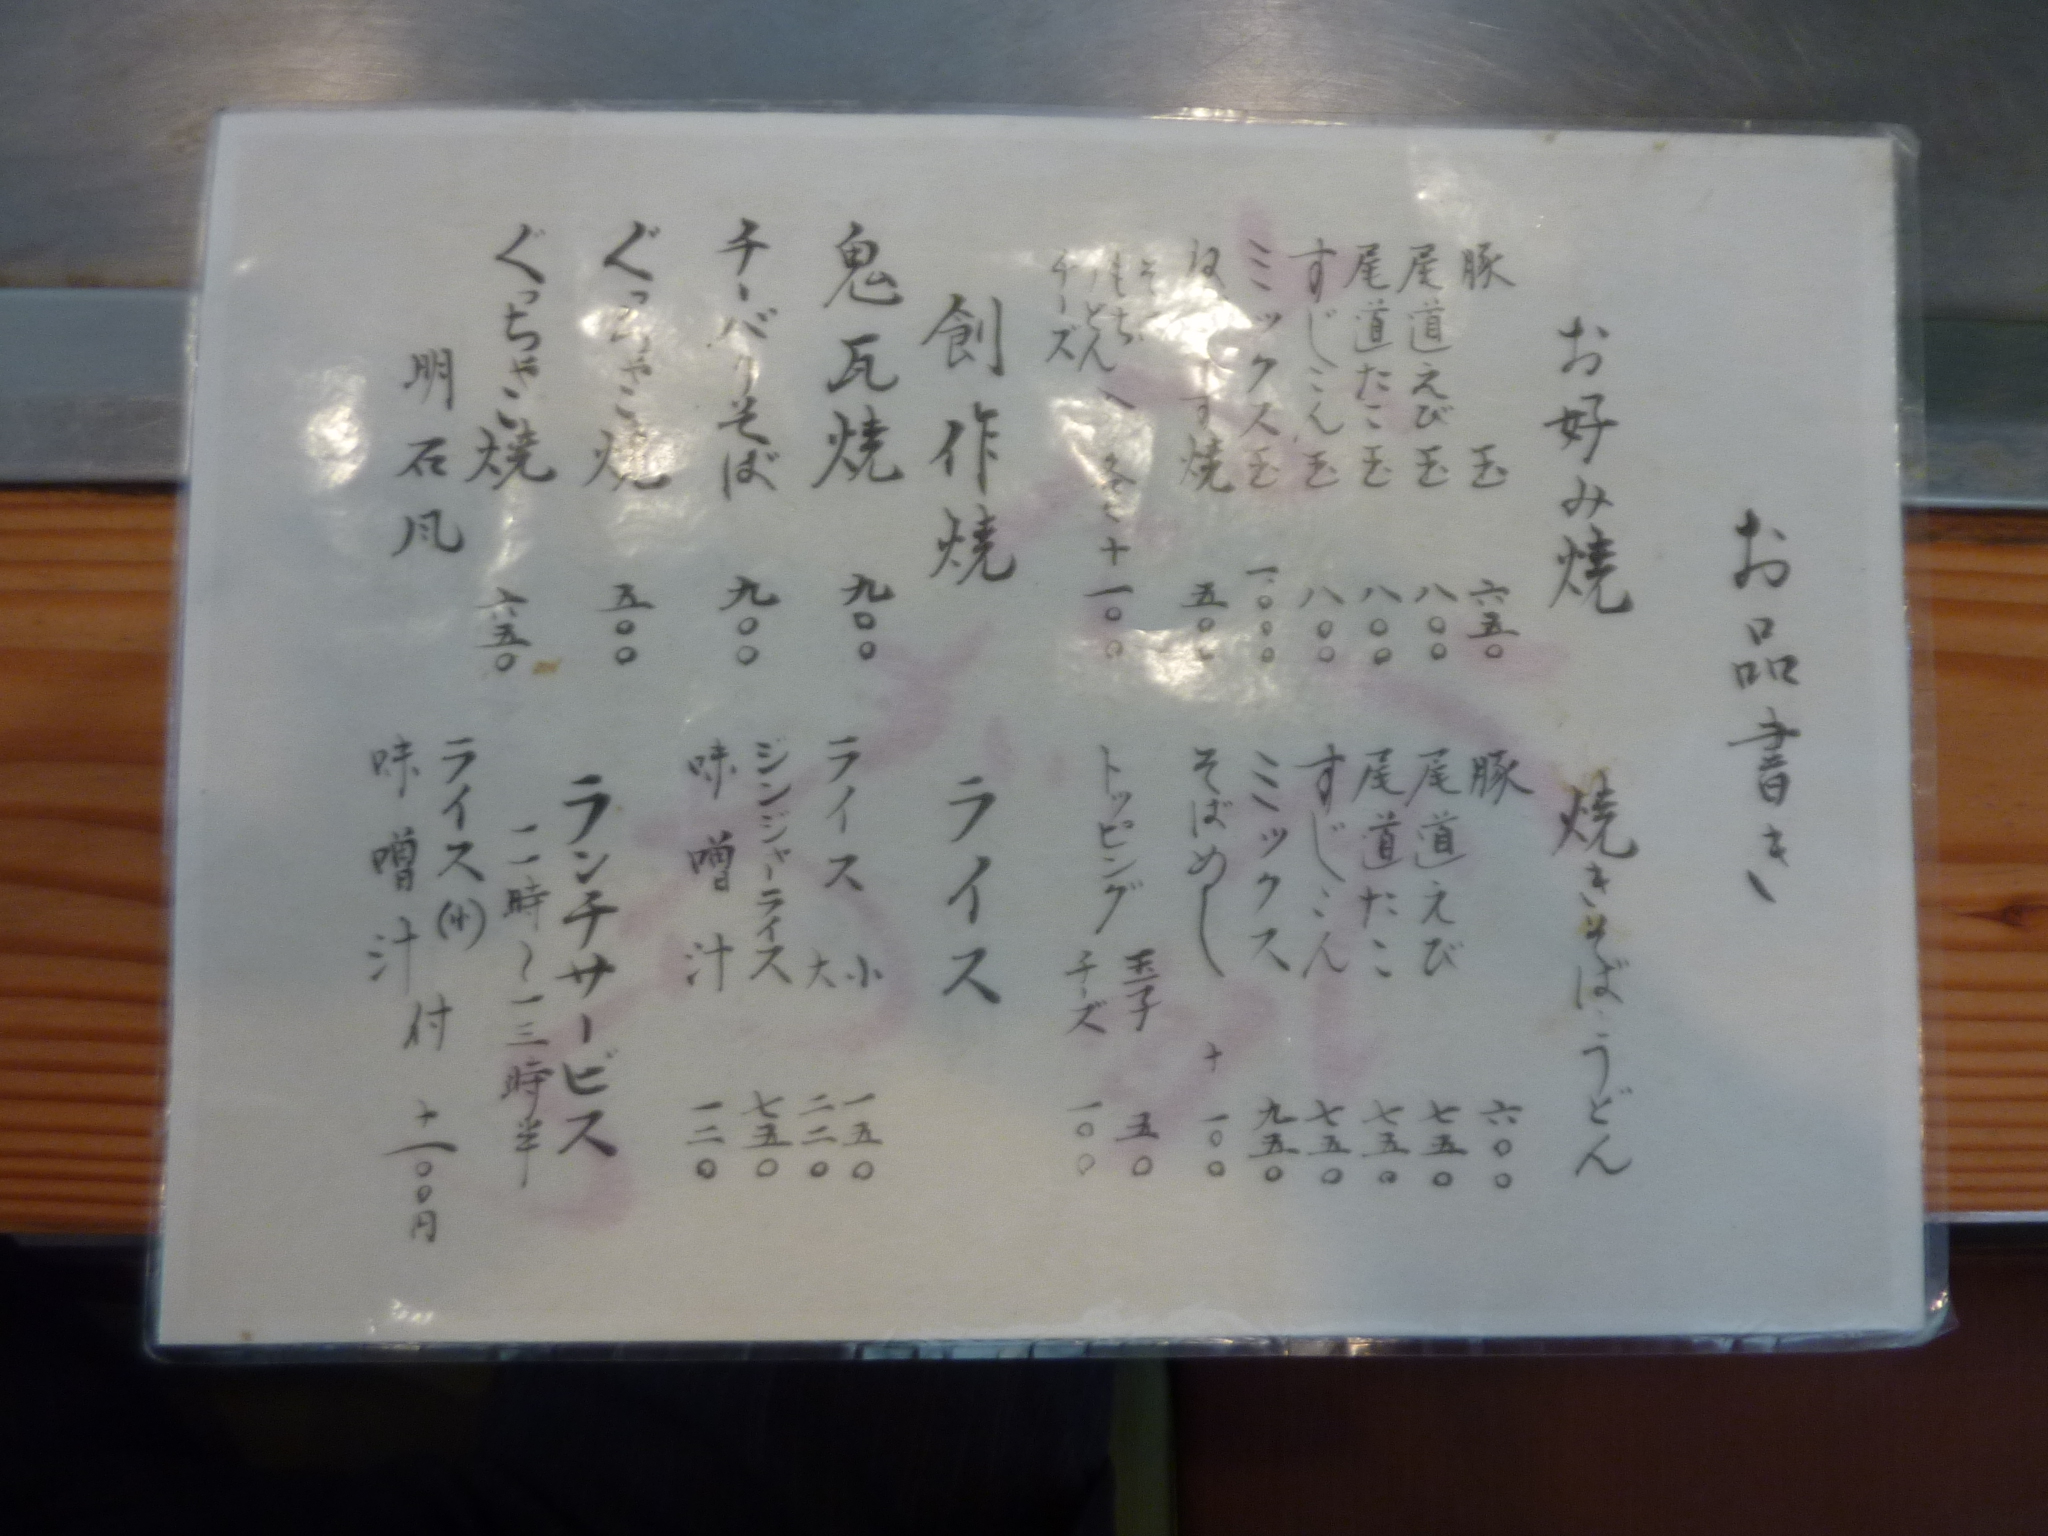 お品書き
お好み焼
豚 玉 六五〇
尾道えび玉 八〇〇
尾道たこ玉 八〇〇
すじこん玉 八〇〇
ミックス玉 一〇〇〇
焼 五〇〇
もち
うどん
チーズ
各々+一〇〇
焼きそば・うどん
豚 六〇〇
尾道えび 七五〇
尾道たこ 七五〇
すじこん 七五〇
ミックス 九五〇
そばめし + 一〇〇
トッピング 玉子 五〇
チーズ 一〇〇
創作焼
鬼瓦焼 九〇〇
チーバリそば 九〇〇
ぐっちゃこ焼 五〇〇
ぐっちゃこ焼 六五〇
明石風
ライス
ライス 小 一五〇
大 二二〇
ジンジャーライス 七五〇
味噌汁 一二〇
ランチサービス
一一時~一三時半
ライス(小)付
味噌汁
+一〇〇円